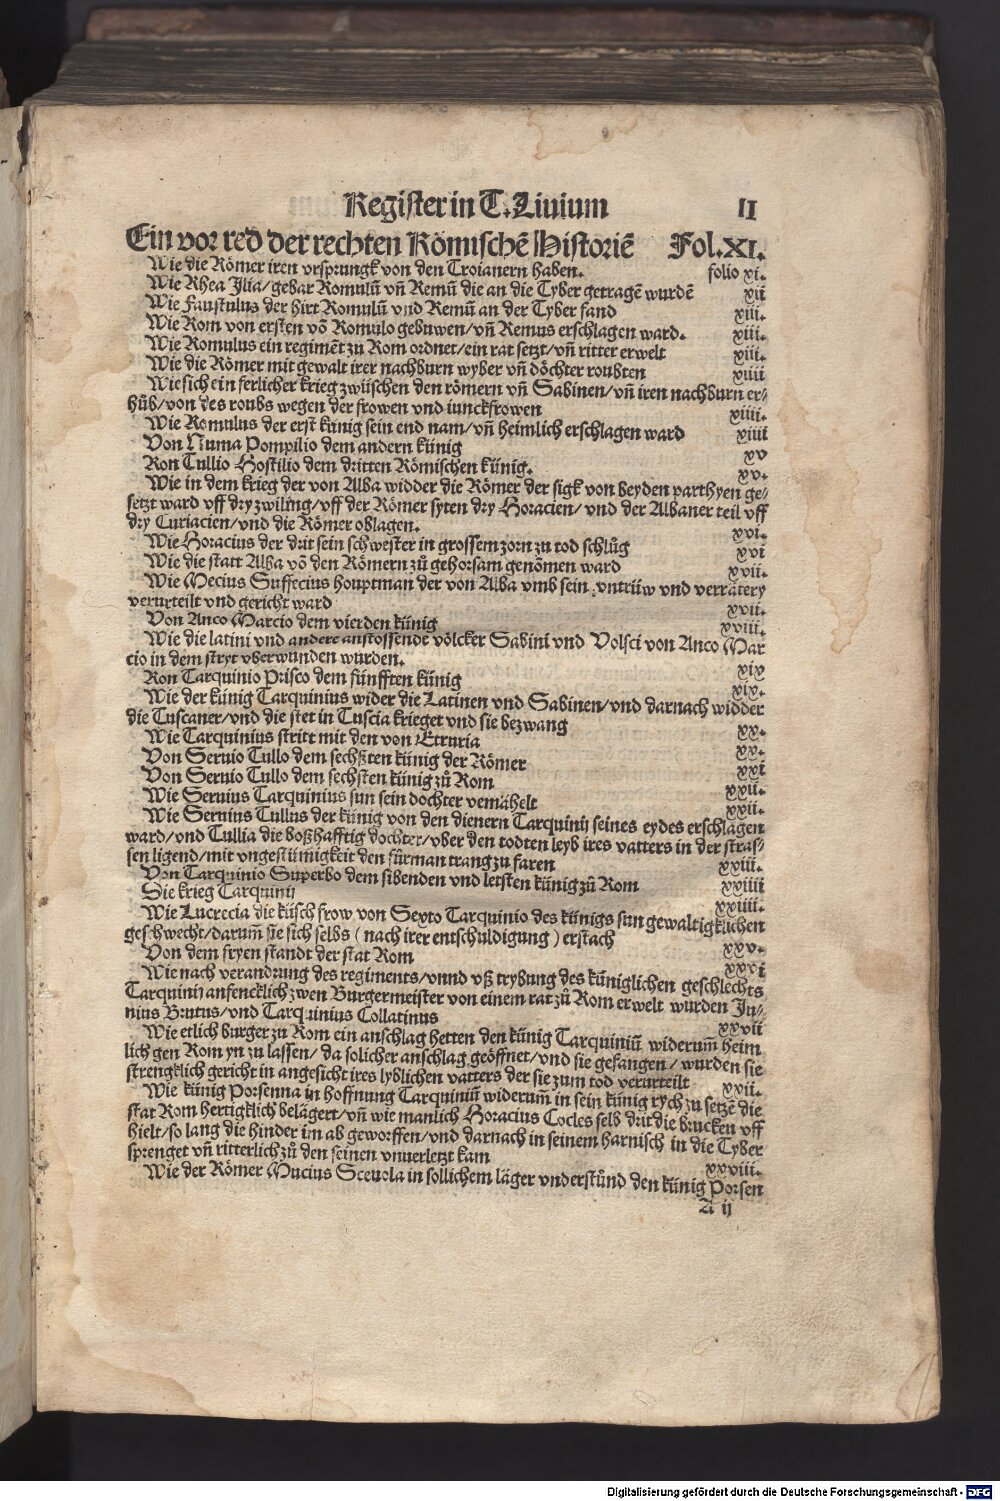 Register in T. Liuium II
Ein vor red der rechten Römischē Historiē Fol. XI.
Wie die Römer iren vrsprungk von den Troianern haben. folio xi.
Wie Rhea Jlia/gebar Romulū vn̄ Remū die an die Tyber getragē wurdē xii
Wie Faustulus der hirt Romulū vnd Remū an der Tyber fand xiii.
Wie Rom von ersten vō Romulo gebuwen/vn̄ Remus erschlagen ward. xiii.
Wie Romulus ein regimēt zu Rom ordnet/ein rat setzt/vn̄ ritter erwelt xiii.
Wie die Römer mit gewalt irer nachburn wyber vn̄ döchter roubten xiiii
Wie sich ein ferlicher krieg zwüschen den römern vn̄ Sabinen/vn̄ iren nachburn er⸗
hůb/von des roubs wegen der frowen vnd iunckfrowen xiiii.
Wie Romulus der erst künig sein end nam/vn̄ heimlich erschlagen ward xiiii
Von Numa Pompilio dem andern künig xv
Ron Tullio Hostilio dem dritten Römischen künig. xv.
Wie in dem krieg der von Alba widder die Römer der sigk von beyden parthyen ge⸗
setzt ward vff dry zwiling/vff der Römer syten dry Horacien/vnd der Albaner teil vff
dry Curiacien/vnd die Römer oblagen. xvi.
Wie Horacius der drit sein schwester in grossem zorn zu tod schlůg xvi
Wie die statt Alba vō den Römern zů gehorsam genōmen ward xvii.
Wie Mecius Suffecius houptman der von Alba vmb sein vntrüw vnd verrätery
verurteilt vnd gericht ward xvii.
Von Anco Marcio dem vierden künig xviii.
Wie die latini vnd andere anstossende völcker Sabini vnd Volsci von Anco Mar
cio in dem stryt vberwunden wurden. xix
Ron Tarquinio Prisco dem fünfften künig xix.
Wie der künig Tarquinius wider die Latinen vnd Sabinen/vnd darnach widder
die Tuscaner/vnd die stet in Tuscia krieget vnd sie bezwang xx.
Wie Tarquinius stritt mit den von Etruria xx.
Von Seruio Tullo dem sechßten künig der Römer xxi
Von Seruio Tullo dem sechsten künig zů Rom xxii.
Wie Seruius Tarquinius sun sein dochter vemähelt xxii.
Wie Seruius Tullus der künig von den dienern Tarquinij seines eydes erschlagen
ward/vnd Tullia die boßhafftig dochter/vber den todten leyb ires vatters in der stras⸗
sen ligend/mit vngestümigkeit den fürman trang zu faren xxiii.
Von Tarquinio Superbo dem sibenden vnd letsten künig zů Rom xxiiii
Die krieg Tarquinij xxiiii.
Wie Lucrecia die küsch frow von Sexto Tarquinio des künigs sun gewaltigklichen
geschwecht/darum̄ sie sich selbs (nach irer entschuldigung) erstach xxv.
Von dem fryen standt der stat Rom xxvi
Wie nach verandrung des regiments/vnnd vß trybung des küniglichen geschlechts
Tarquinij anfencklich zwen Burgermeister von einem rat zů Rom erwelt wurden Ju⸗
nius Brutus/vnd Tarquinius Collatinus xxvii
Wie etlich burger zu Rom ein anschlag hetten den künig Tarquiniū widerum̄ heim
lich gen Rom yn zu lassen/da solicher anschlag geöffnet/vnd sie gefangen/wurden sie
strengklich gericht in angesicht ires lyblichen vatters der sie zum tod verurteilt xxvii.
Wie künig Porsenna in hoffnung Tarquiniū widerum̄ in sein künig rych zu setzē die
stat Rom hertigklich belägert/vn̄ wie manlich Horacius Cocles selb drit die brucken vff
hielt/so lang die hinder im ab geworffen/vnd darnach in seinem harnisch in die Tyber
sprenget vn̄ ritterlich zů den seinen vnuerletzt kam xxviii.
Wie der Römer Mucius Sceuola in sollichem läger vnderstůnd den künig Porsen
A ij
Digitalisierung gefördert durch die Deutsche Forschungsgemeinschaft - DFG